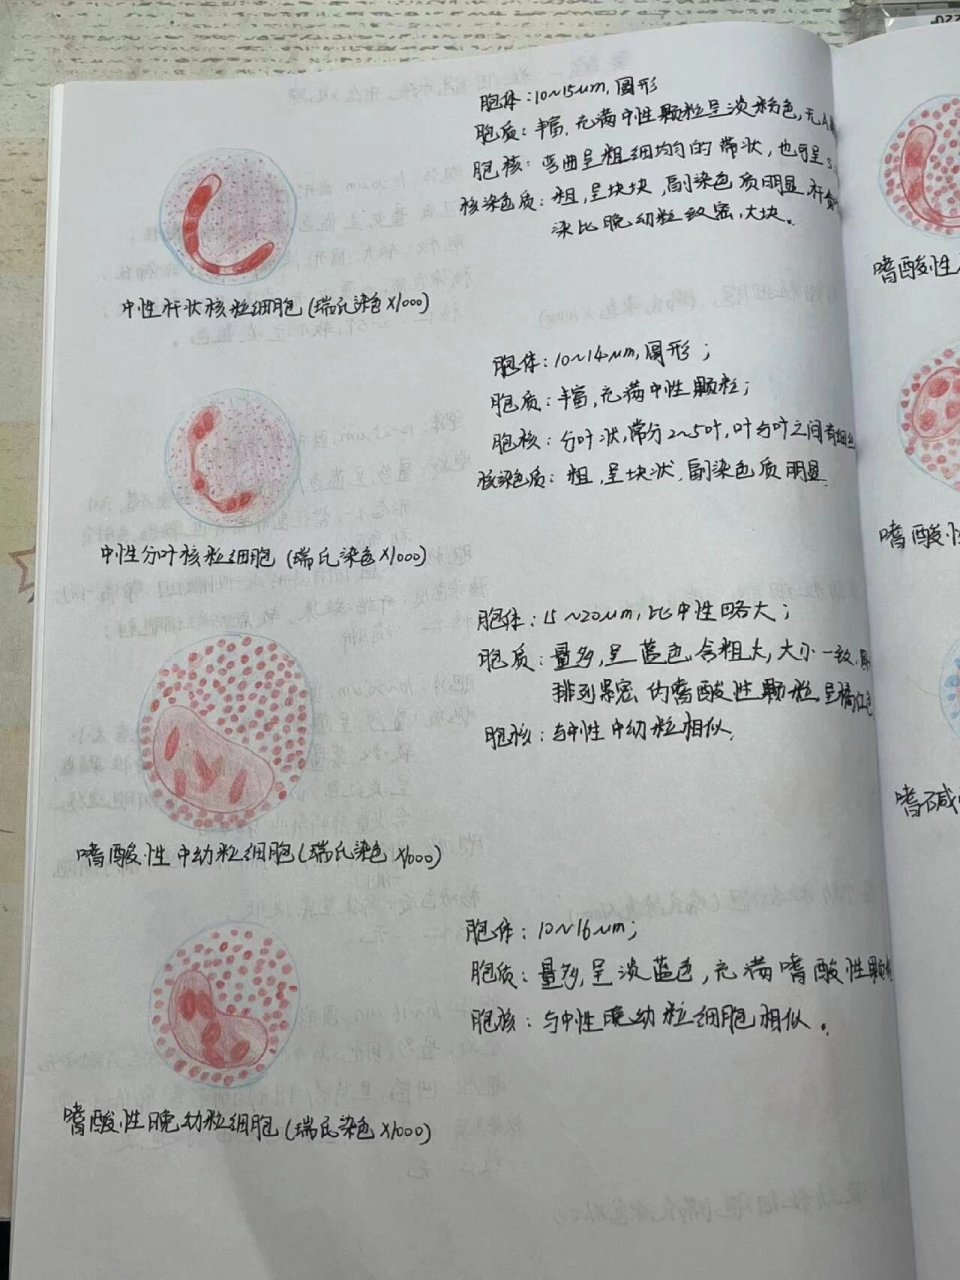 胞体:10~15um,圆形
胞质:丰富,充满中性颗粒呈淡粉色,无A
胞核:弯曲呈粗细均匀的带状,也可呈S
核染色质:粗,呈块块,副染色质明显,杆
染比晚幼粒致密,大块。
中性杆状核粒细胞(瑞氏染色×1000)
胞体:10~14um,圆形;
胞质:丰富,充满中性颗粒;
胞核:分叶状,常分2~5叶,叶与叶之间有细丝
核染色质:粗,呈块状,副染色质明显.
中性分叶核粒细胞(瑞氏染色×1000)
胞体:15~20um,比中性略大;
胞质:量多,呈蓝色,含粗大,大小一致,
排列紧密的嗜酸性颗粒,呈橘红色
胞核:与中性中幼粒相似.
嗜酸性中幼粒细胞(瑞氏染色×1000)
胞体:10~16um;
胞质:量多,呈淡蓝色,充满嗜酸性颗
胞核:与中性晚幼粒细胞相似。
嗜酸性晚幼粒细胞(瑞氏染色×1000)
嗜酸性
嗜酸性
嗜碱